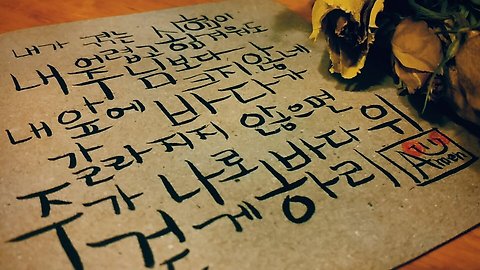 내가 겪는 시험이
어렵고 힘겨워도
내 주님보다 크지 않네
내 앞에 바다가
갈라지지 않으면
주가 나로 바다 위
걷게 하리
Amen